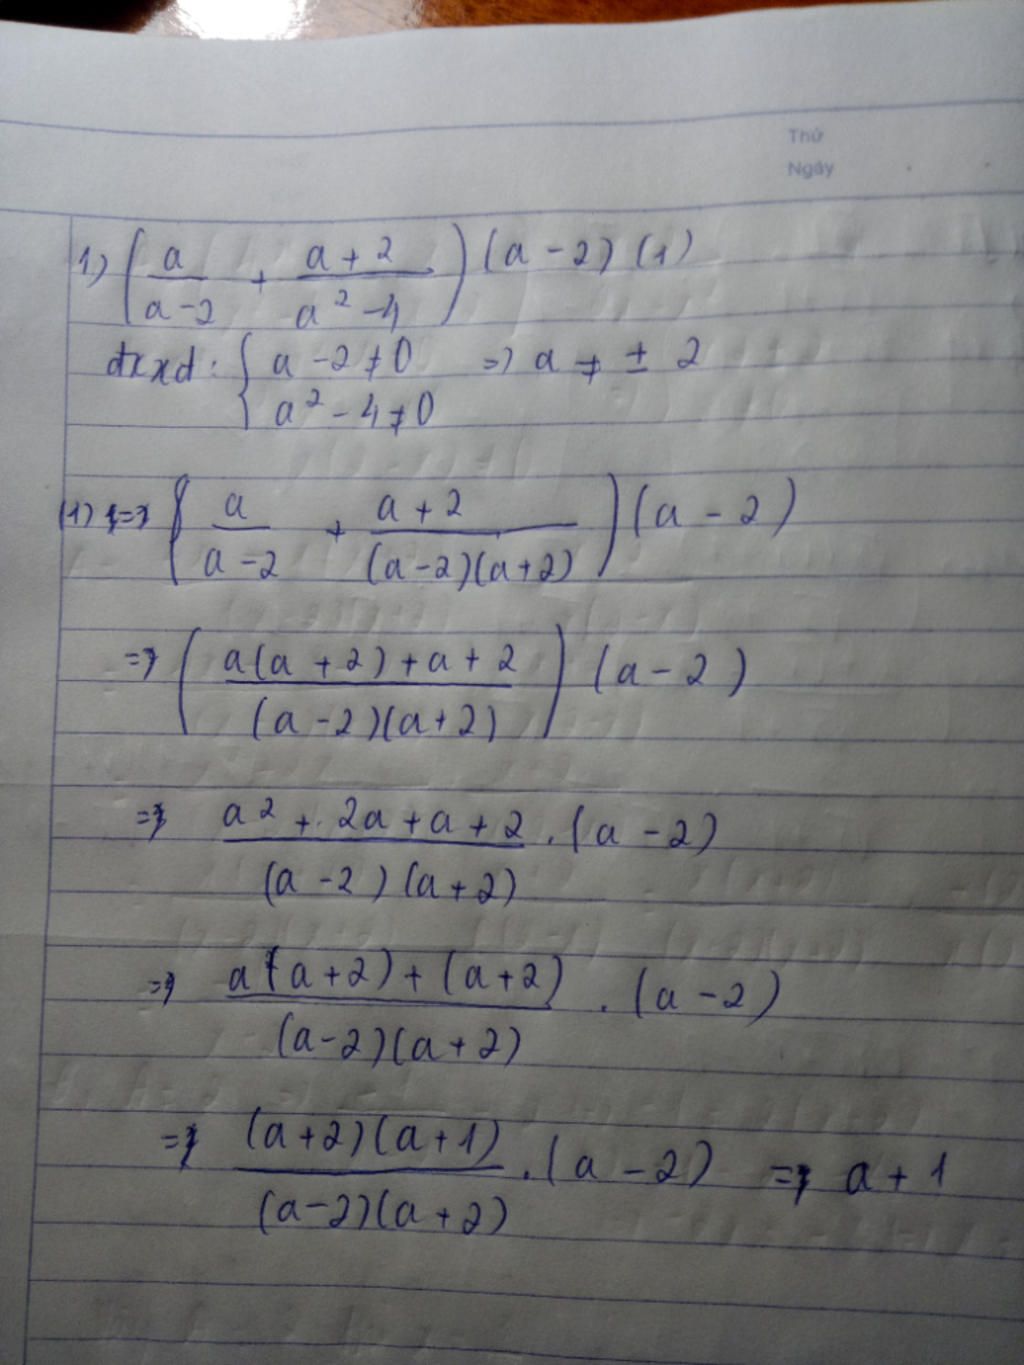 Thứ
Ngày
1) (a/(a-2) + (a+2)/(a²-4)) (a-2) (1)
đkxđ: { a-2≠0 => a ≠ ± 2
a²-4≠0
(1) <=> (a/(a-2) + (a+2)/((a-2)(a+2))) (a-2)
=> ((a(a+2)+a+2)/((a-2)(a+2))) (a-2)
=> (a²+2a+a+2)/((a-2)(a+2)) . (a-2)
=> (a(a+2)+(a+2))/((a-2)(a+2)) . (a-2)
=> ((a+2)(a+1))/((a-2)(a+2)) . (a-2) => a+1